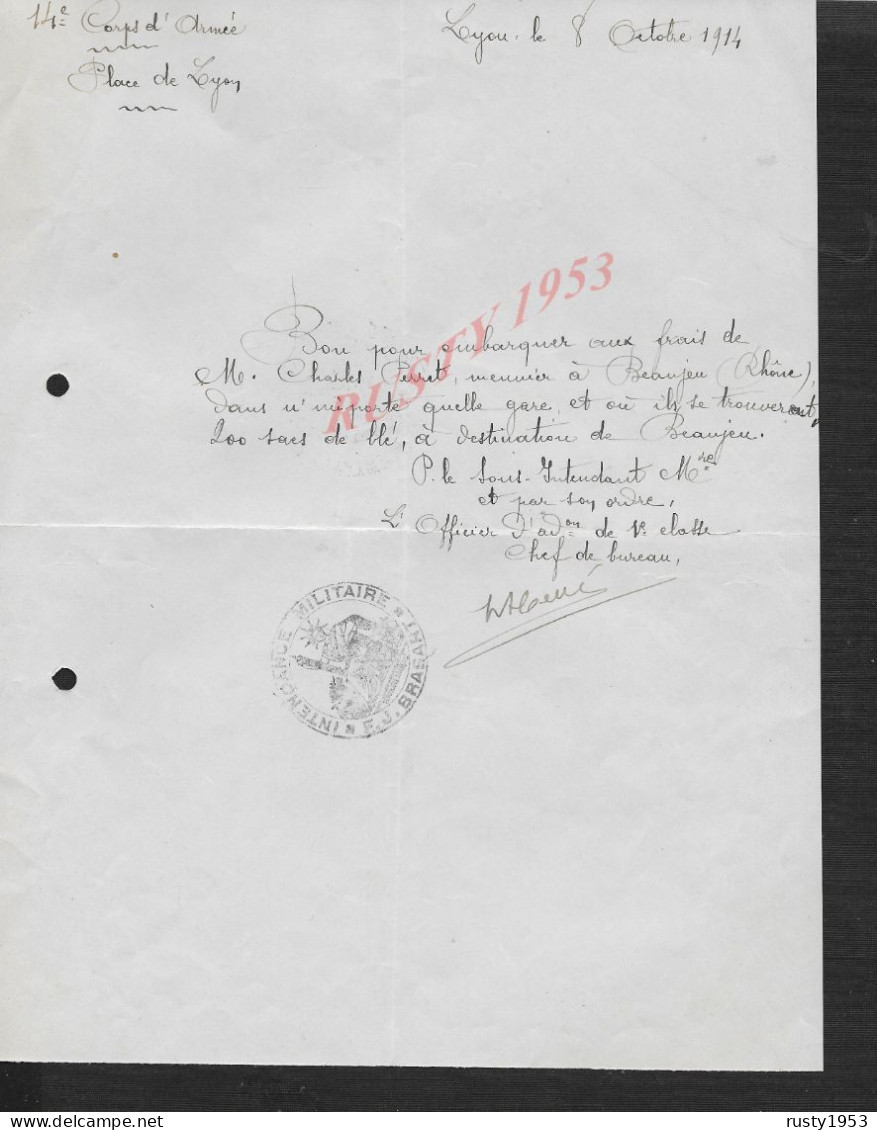 14e Corps d'Armée
Lyon. le 8 Octobre 1914
Place de Lyon
RUSTY 1953
Bon pour embarquer aux frais de
M. Charles Perret, meunier à Beaujeu (Rhône),
dans n'importe quelle gare, et où ils se trouveront,
200 sacs de blé, à destination de Beaujeu.
P. le Sous-Intendant Mre
et par son ordre,
L'Officier d'adon de 1e classe
Chef de bureau,
INTENDANCE MILITAIRE
F. J. BRASART
rusty1953